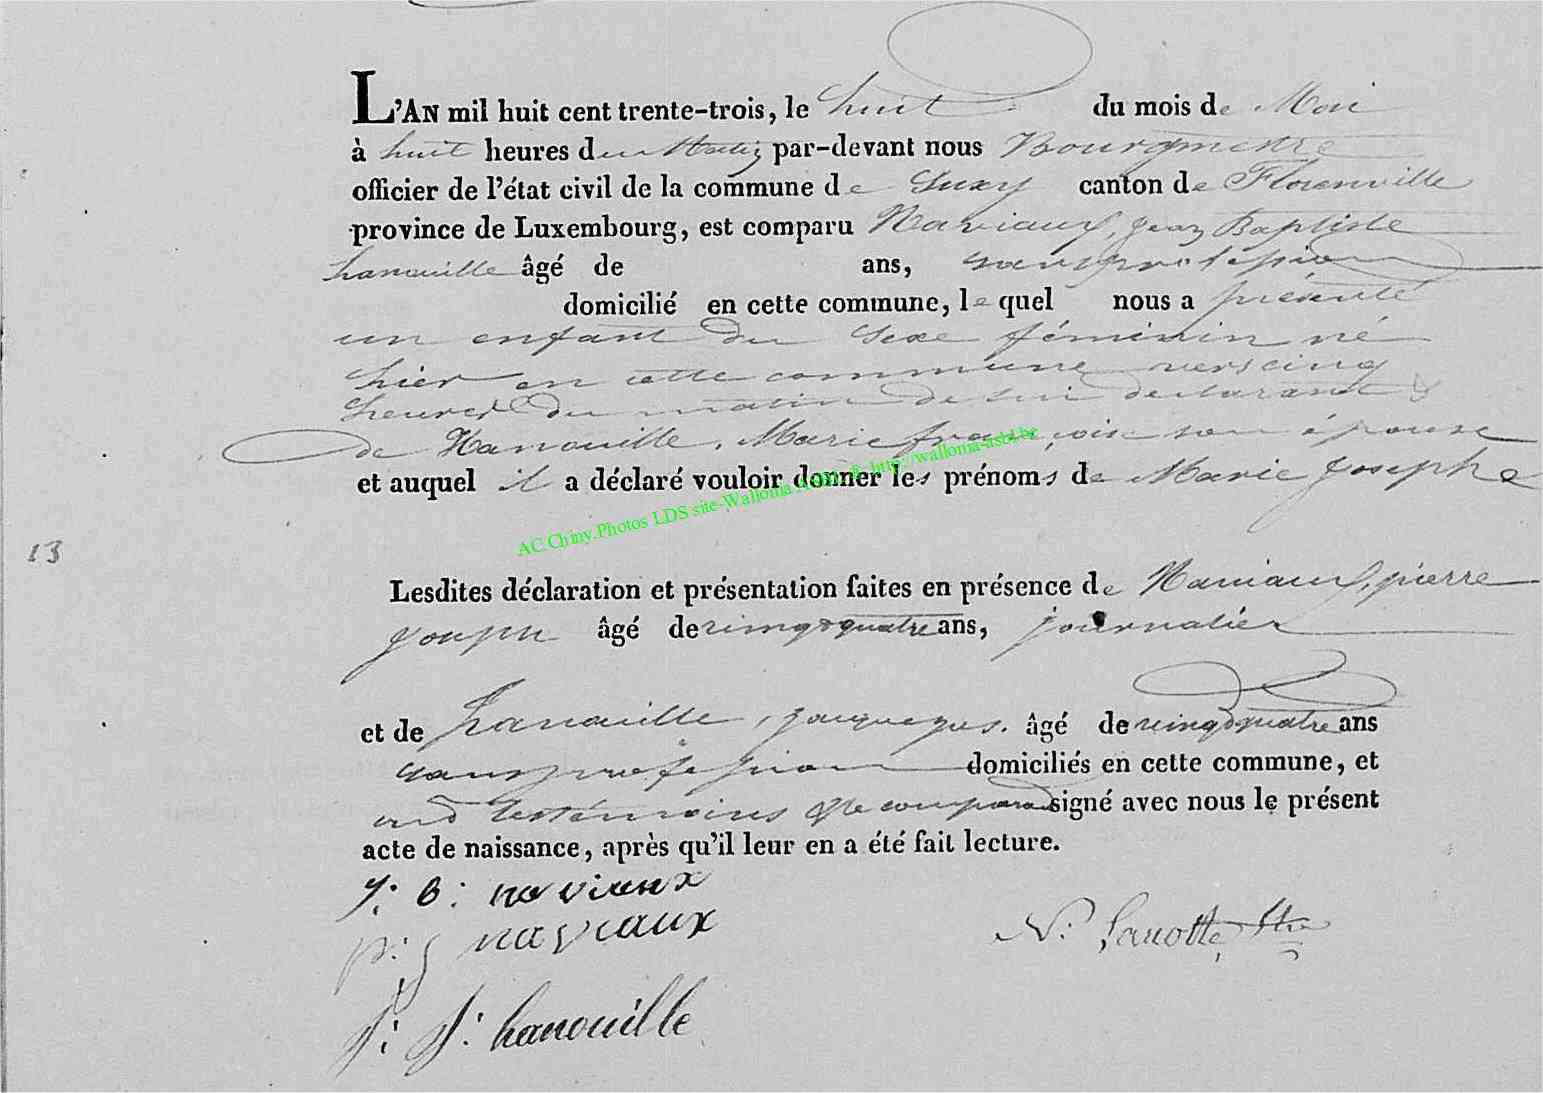 L'AN mil huit cent trente-trois, le huit du mois de Mai
à huit heures du Matin par-devant nous Bourgmestre
officier de l'état civil de la commune de Suxy canton de Florenville
province de Luxembourg, est comparu Naviaux, Jean Baptiste
hanouille âgé de ans, sans profession
domicilié en cette commune, lequel nous a présenté
un enfant du sexe féminin né
hier en cette commune vers cinq
heures du matin de lui déclarant &
de Hanouille, Marie françoise son épouse
et auquel il a déclaré vouloir donner les prénoms de Marie Josephe
AC.Chiny.Photos LDS site-Walloma Asbl © http://walloma-asbl.be
13
Lesdites déclaration et présentation faites en présence de Naviaux, pierre
Joseph âgé de vingt quatre ans, journalier
et de hanouille, jacques. âgé de vingt quatre ans
sans profession domiciliés en cette commune, et
ond les témoins & le comparant signé avec nous le présent
acte de naissance, après qu'il leur en a été fait lecture.
J: B: naviaux
p: J naviaux
N. Lanotte
J: J: hanouille